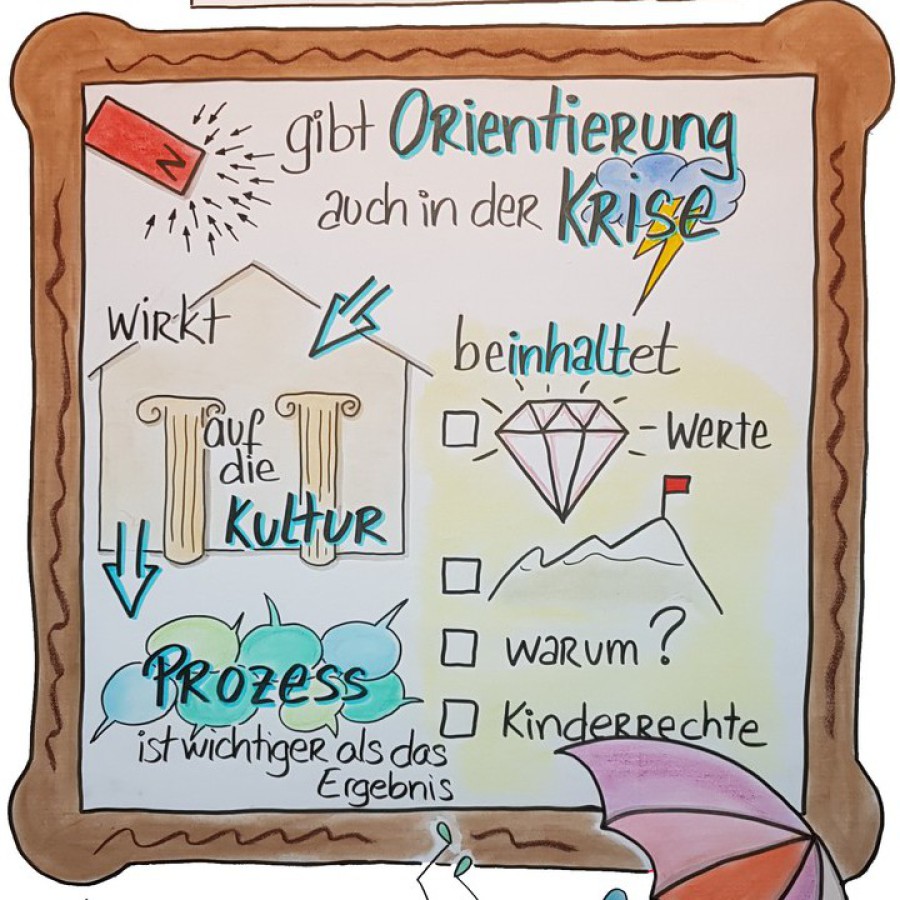 N
gibt Orientierung
auch in der Krise
wirkt
auf
die
Kultur
Prozess
ist wichtiger als das
Ergebnis
beinhaltet
- Werte
warum?
Kinderrechte